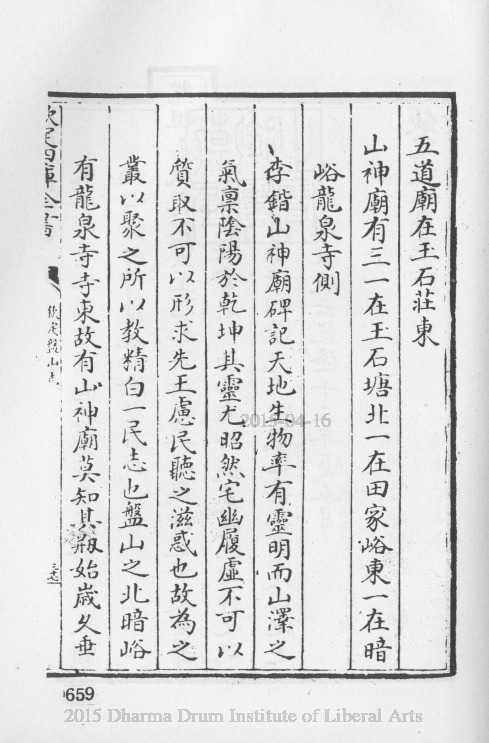 五道廟在玉石莊東
山神廟有三一在玉石塘北一在田家峪東一在暗
峪龍泉寺側
李鍇山神廟碑記天地生物率有靈明而山澤之
氣禀陰陽於乾坤其靈尤昭然宅幽履虛不可以
質取不可以形求先王慮民聽之滋惑也故為之
叢以聚之所以教精白一民志也盤山之北暗峪
有龍泉寺寺東故有山神廟莫知其剏始歲久垂
欽定四庫全書
欽定盤山志
2015-04-16
0659
2015 Dharma Drum Institute of Liberal Arts